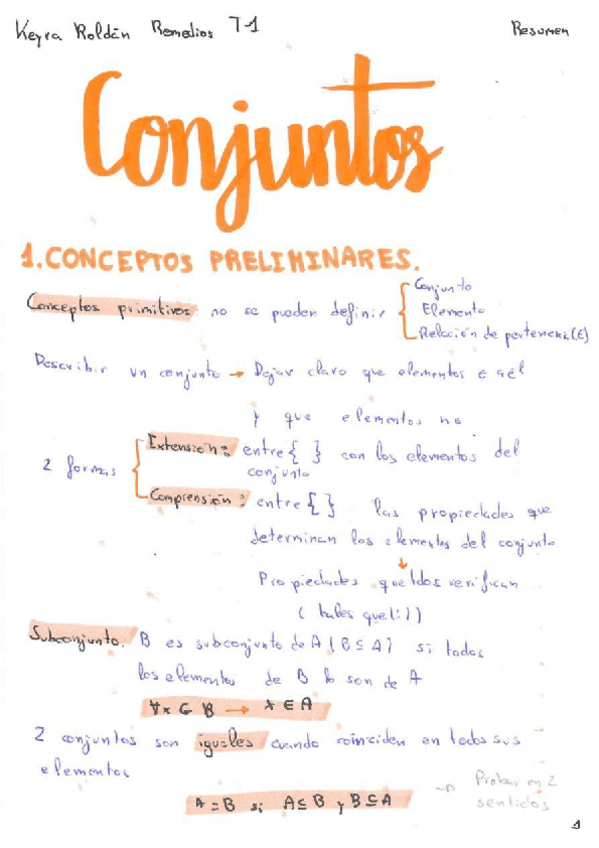 Keyra Roldán Remedios T-1
Resumen
Conjuntos
1. CONCEPTOS PRELIMINARES.
Conceptos primitivos: no se pueden definir { Conjunto
Elemento
Relación de pertenencia (∈)
Describir un conjunto → Dejar claro que elementos ∈ a él
y que elementos no
2 formas
Extensión: entre { } con los elementos del
conjunto
Comprensión: entre { } las propiedades que
determinan los elementos del conjunto
↓
Propiedades que tdos verifican
( tales que (:))
Subconjunto. B es subconjunto de A (B ⊆ A) si todos
los elementos de B lo son de A
∀x ∈ B → x ∈ A
2 conjuntos son iguales cuando coinciden en todos sus
elementos
A = B si A ⊆ B y B ⊆ A
→ Probar en 2
sentidos
1